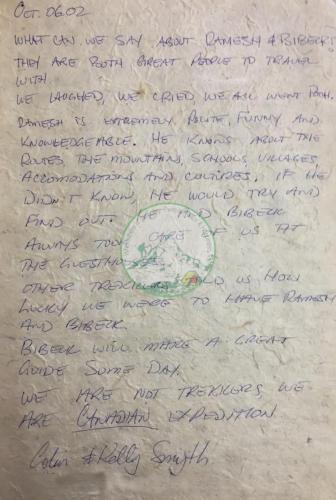 Oct. 06.02
WHAT CAN WE SAY ABOUT RAMESH & BIBECK!
THEY ARE BOTH GREAT PEOPLE TO TRAVEL
WITH.
WE LAUGHED, WE CRIED WE ALL WENT POOH.
RAMESH IS EXTREMELY POLITE, FUNNY AND
KNOWLEDGEABLE. HE KNOWS ABOUT THE
ROUTES, THE MOUNTAINS, SCHOOLS, VILLAGES,
ACCOMODATIONS AND CULTURES, IF HE
DIDN'T KNOW, HE WOULD TRY AND
FIND OUT. HE AND BIBECK
ALWAYS TOOK CARE OF US AT
THE GUESTHOUSE.
OTHER TREKKERS TOLD US HOW
LUCKY WE WERE TO HAVE RAMESH
AND BIBECK.
BIBECK WILL MAKE A GREAT
GUIDE SOME DAY.
WE ARE NOT TREKKERS, WE
ARE CANADIAN EXPEDITION
Colin & Kelly Smyth